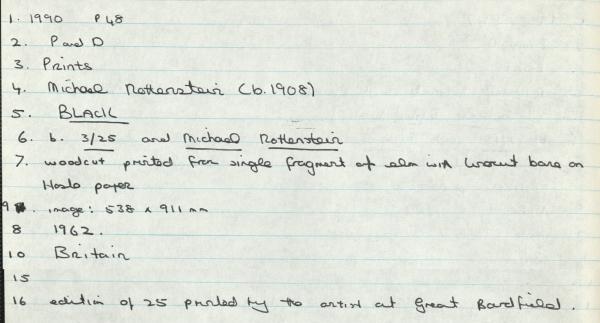 1. 1990 P48
2. P and D
3. Prints
4. Michael Rothenstein (b.1908)
5. BLACK
6. b. 3/25 and Michael Rothenstein
7. woodcut printed from single fragment of elm with worcut bare on
Hosho paper
9. image: 538 x 911 mm
8 1962.
10 Britain
15
16 edition of 25 printed by the artist at Great Bardfield.